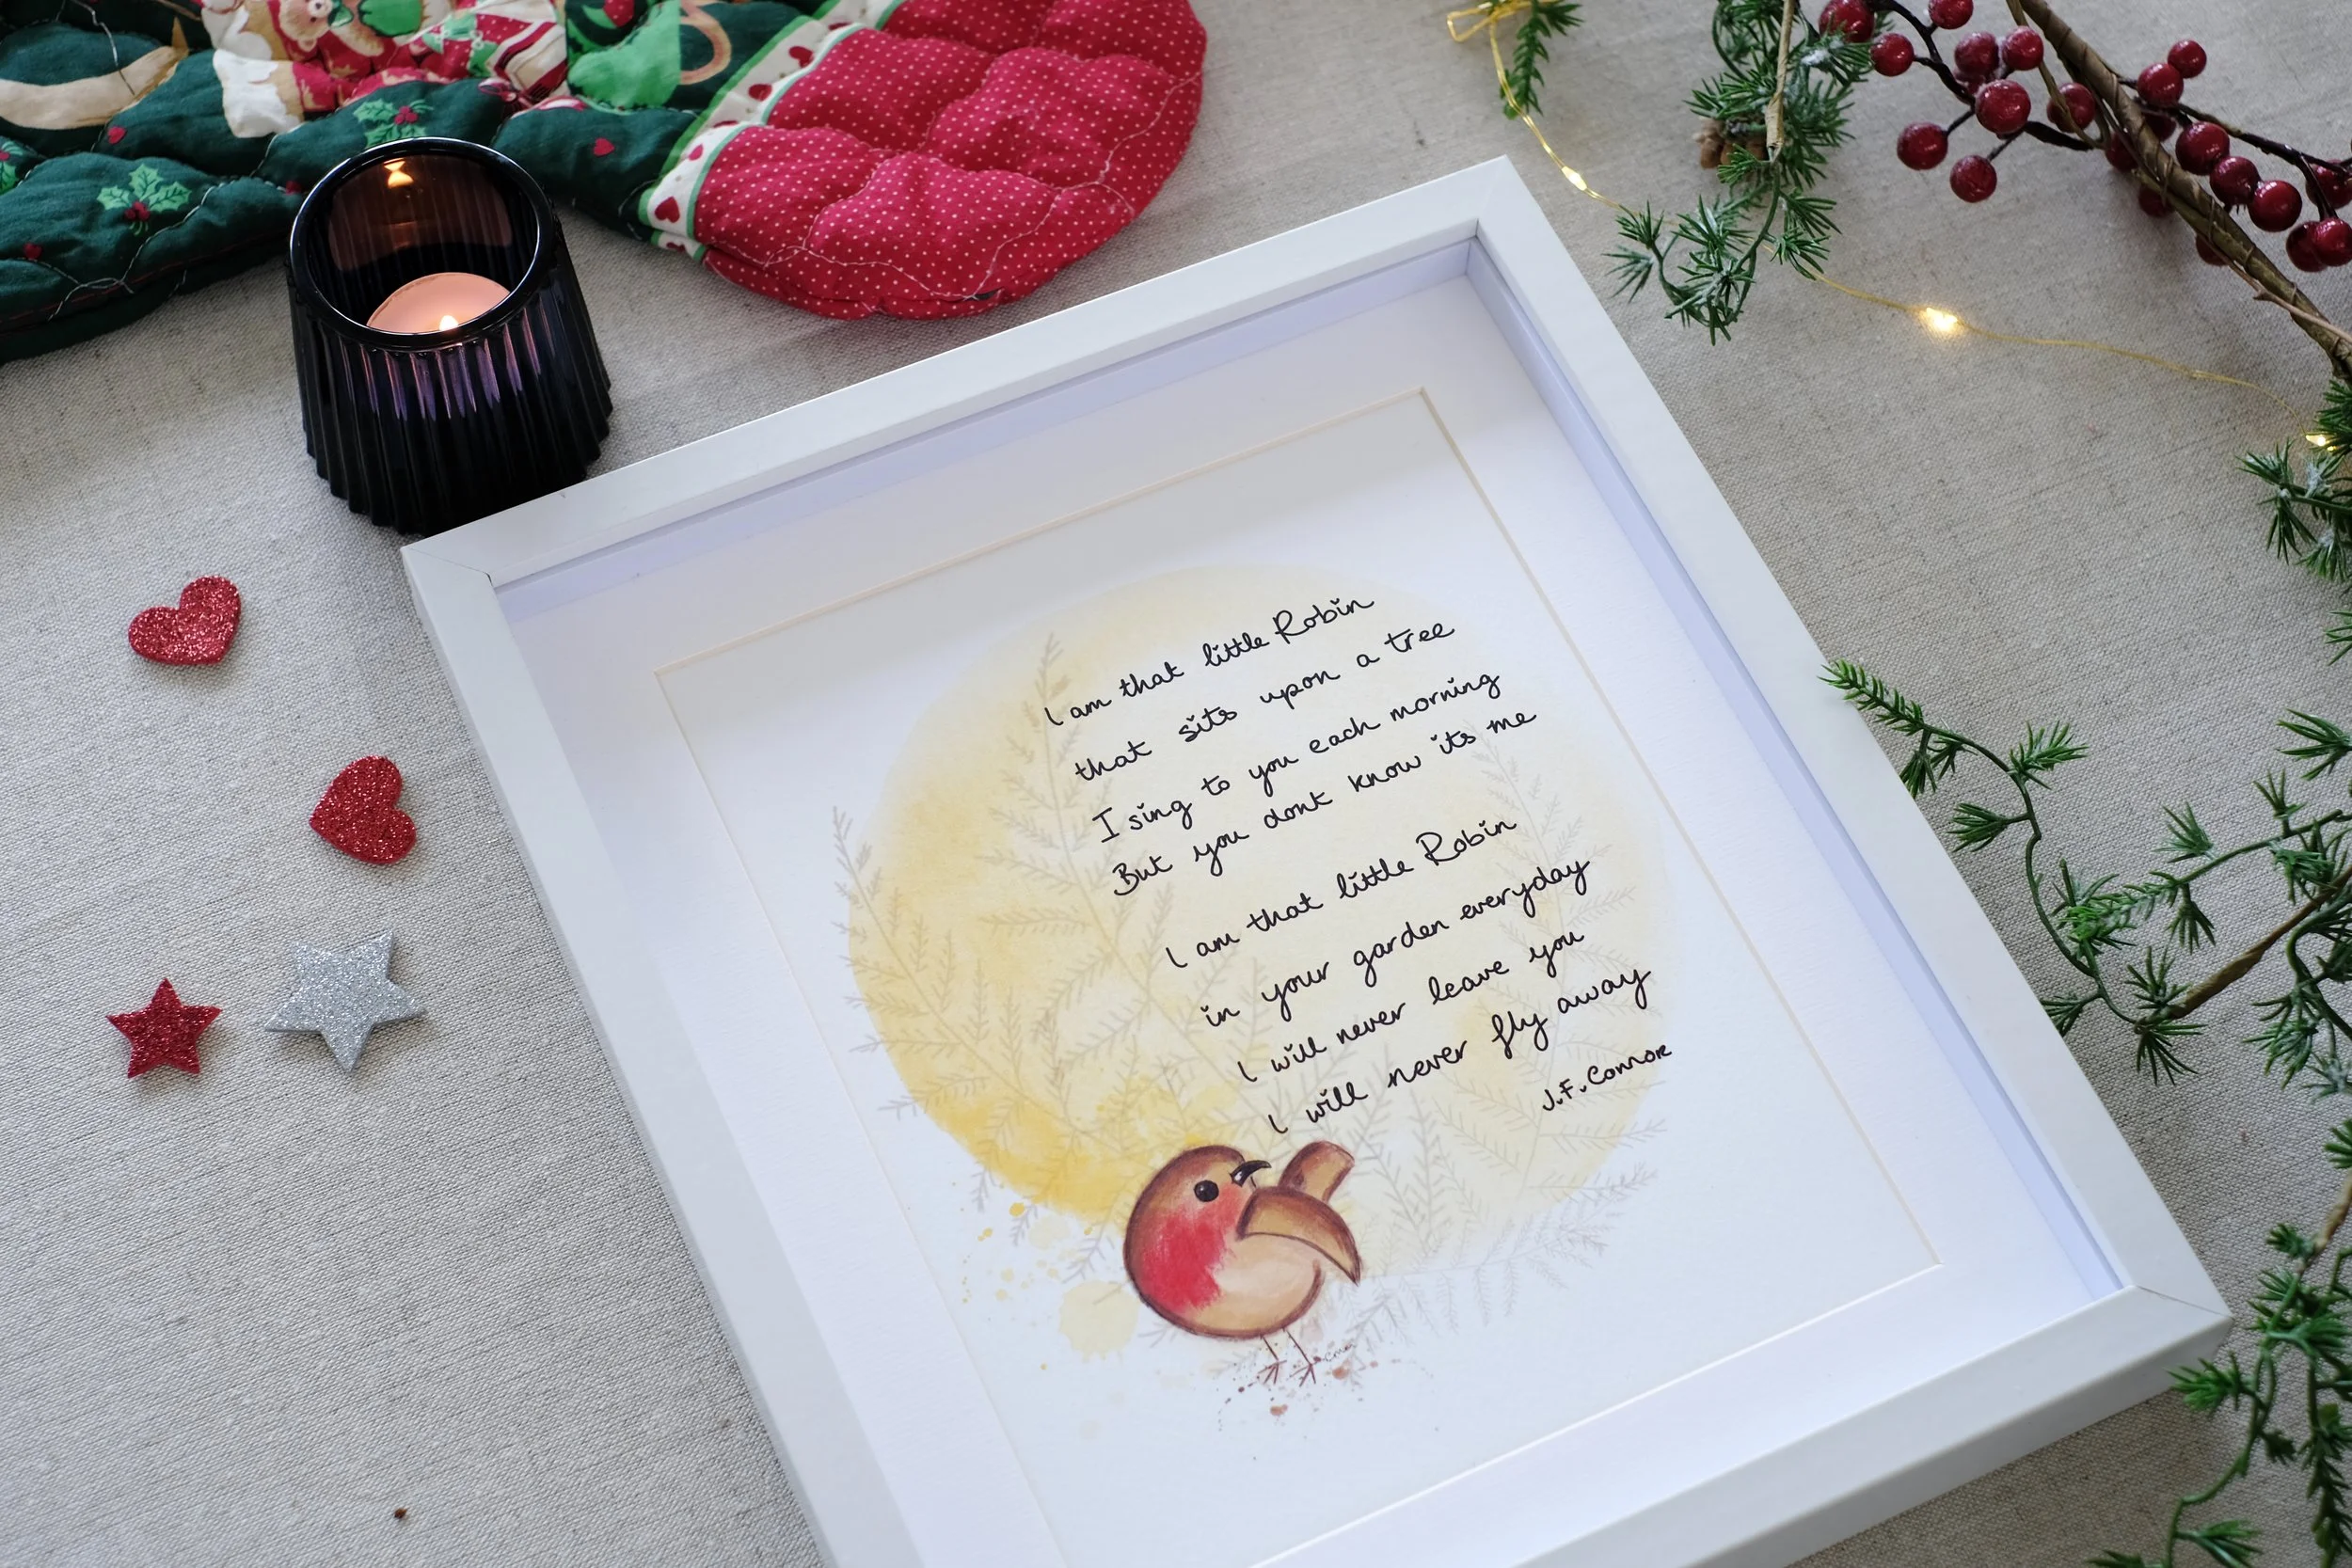 I am that little Robin
that sits upon a tree
I sing to you each morning
But you dont know its me
I am that little Robin
in your garden everyday
I will never leave you
I will never fly away
J.F. Connor